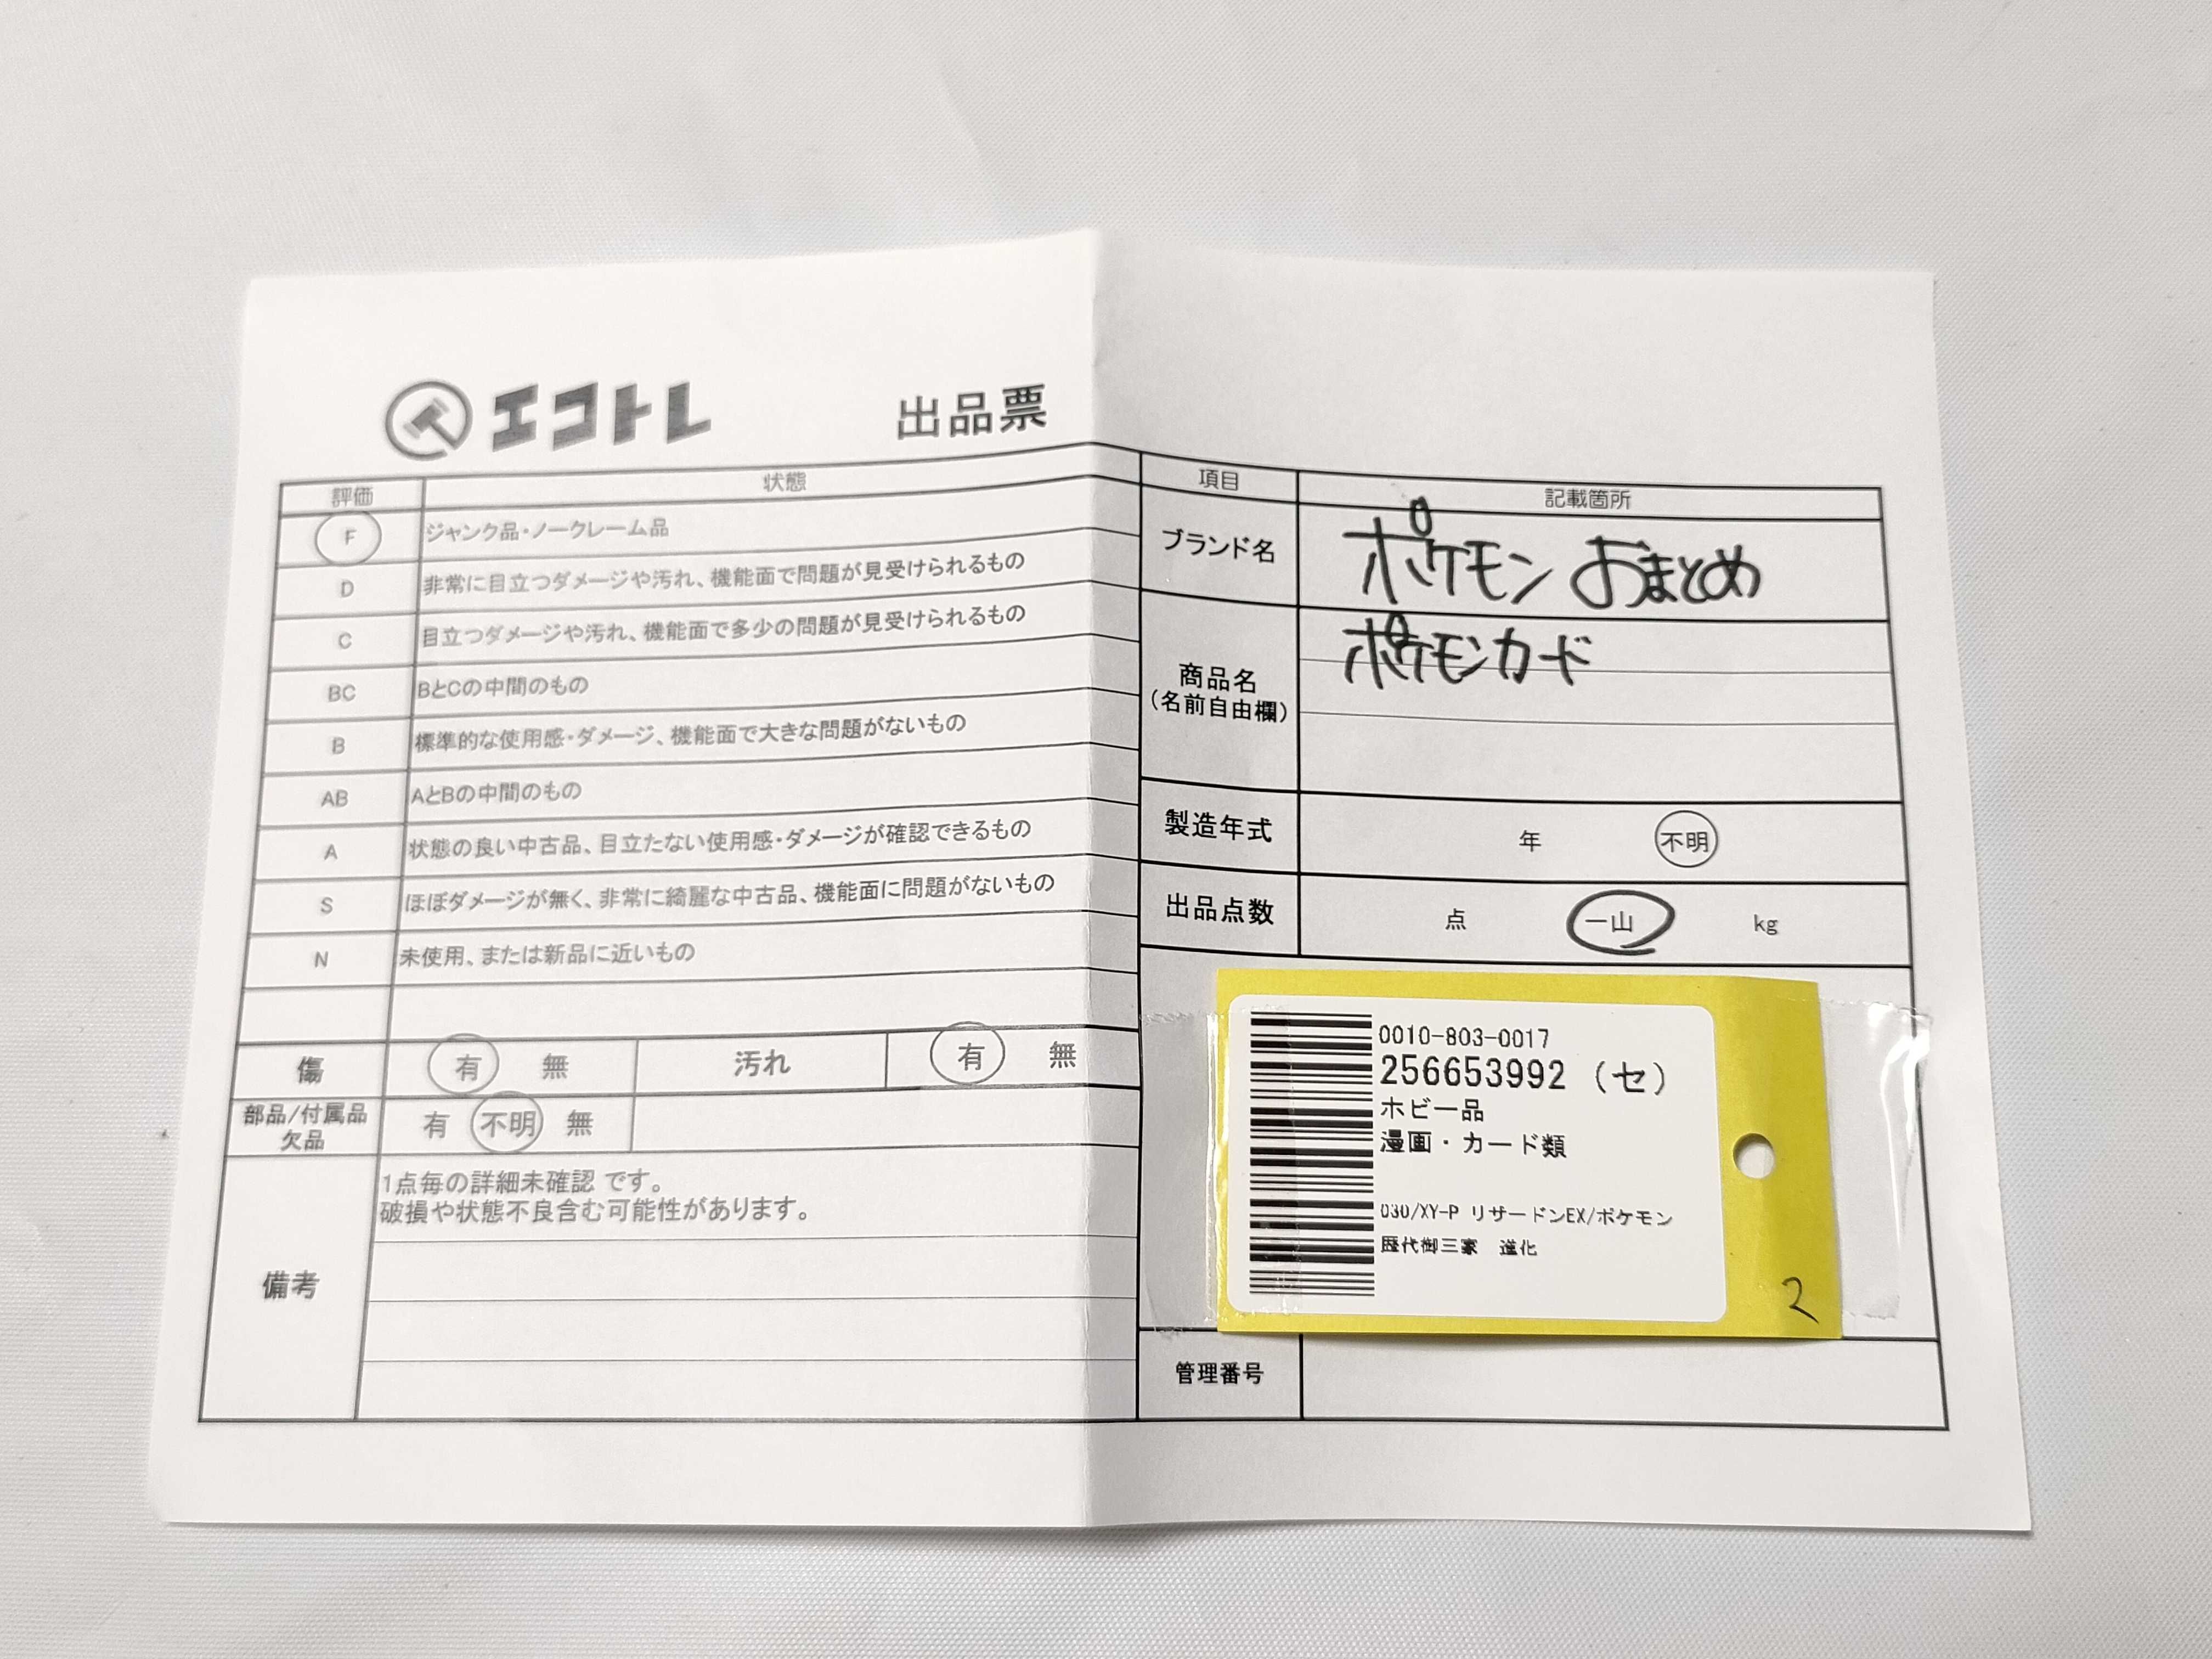 エコトレ
出品票
評価 状態
F ジャンク品・ノークレーム品
D 非常に目立つダメージや汚れ、機能面で問題が見受けられるもの
C 目立つダメージや汚れ、機能面で多少の問題が見受けられるもの
BC BとCの中間のもの
B 標準的な使用感・ダメージ、機能面で大きな問題がないもの
AB AとBの中間のもの
A 状態の良い中古品、目立たない使用感・ダメージが確認できるもの
S ほぼダメージが無く、非常に綺麗な中古品、機能面に問題がないもの
N 未使用、または新品に近いもの
傷 有 無 汚れ 有 無
部品/付属品
欠品
有 不明 無
備考
1点毎の詳細未確認 です。
破損や状態不良含む可能性があります。
項目 記載箇所
ブランド名 ポケモン おまとめ
商品名
(名前自由欄)
ポケモンカード
製造年式 年 不明
出品点数 点 一山 kg
0010-803-0017
256653992 (セ)
ホビー品
漫画・カード類
030/XY-P リザードンEX/ポケモン
歴代御三家 進化
2
管理番号